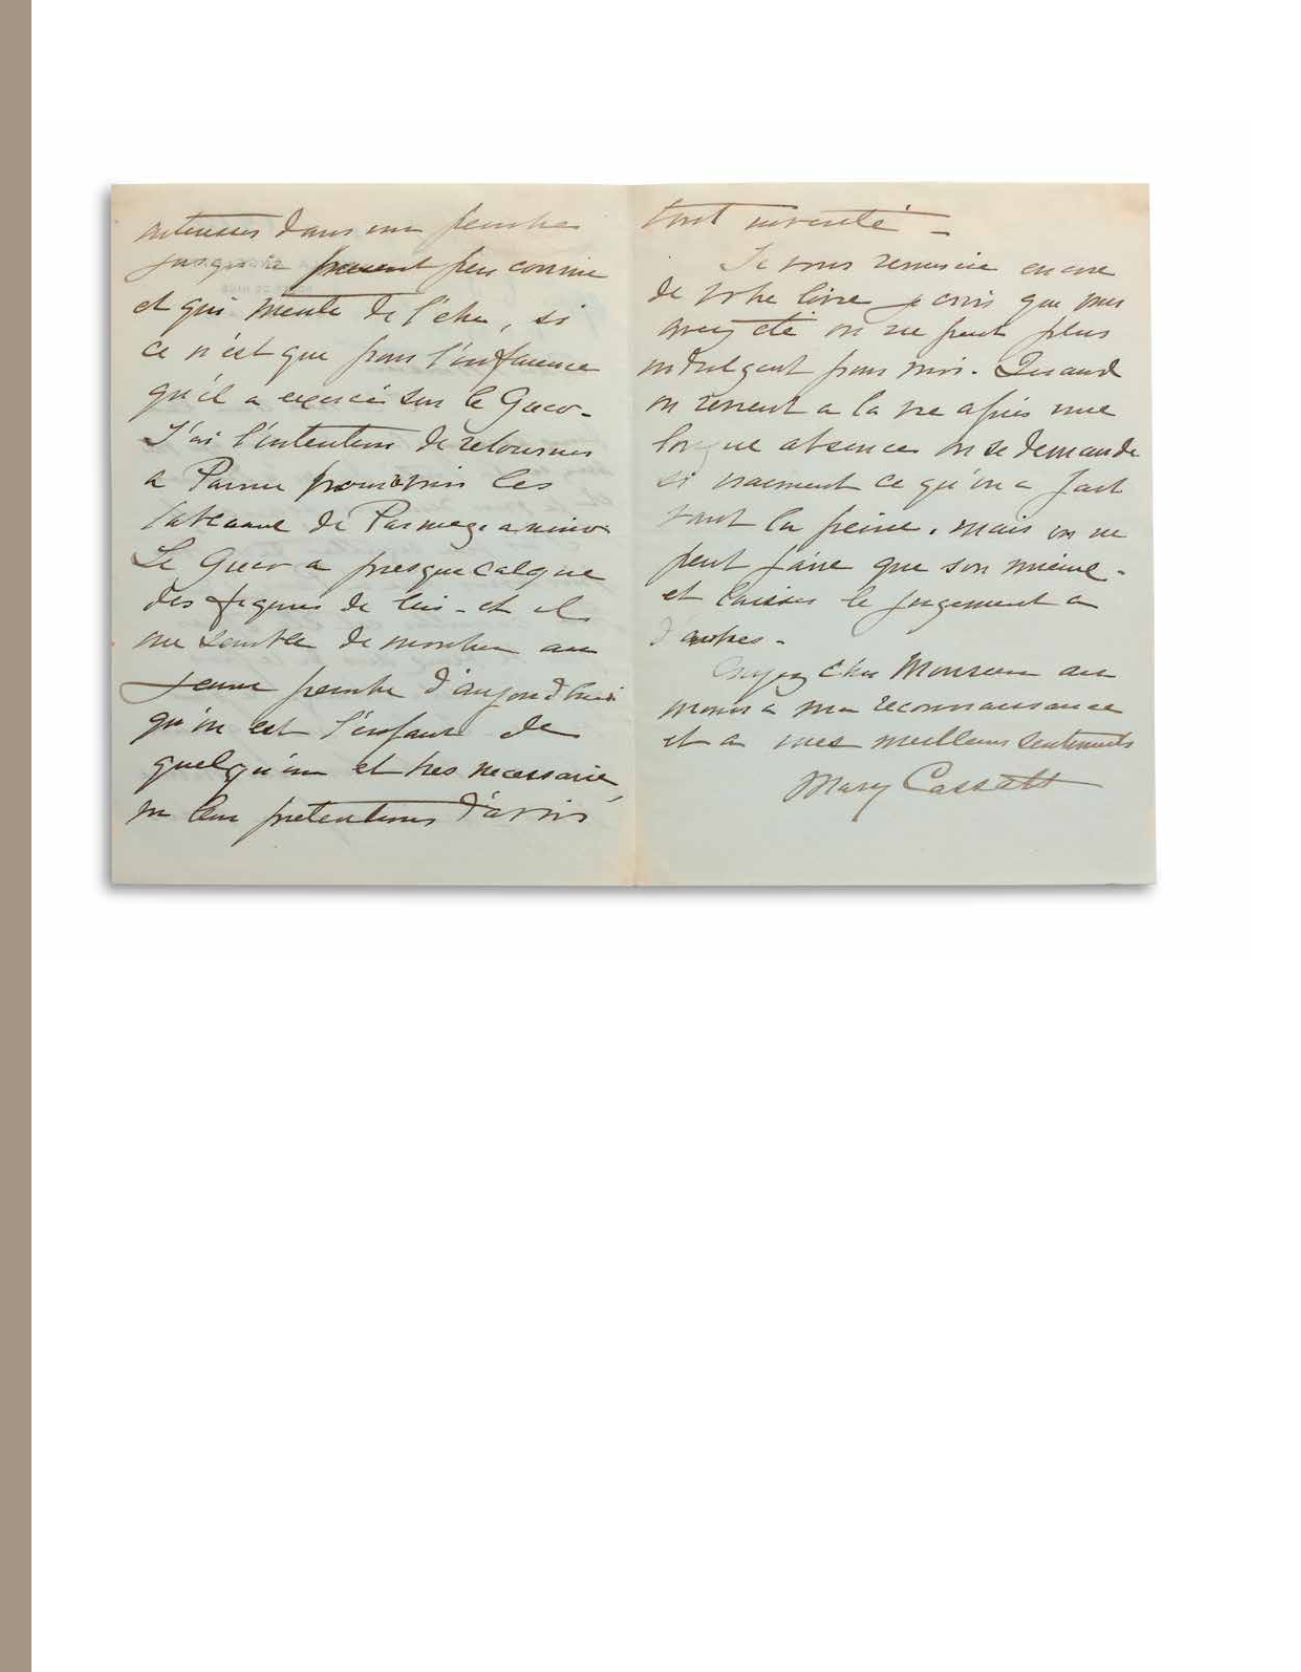 interesser dans un peintre
jusqu'a present peu connu
et qui merite de l'etre, si
ce n'est que pour l'influence
qu'il a exercée sur le Greco -
J'ai l'intention de retourner
a Parme pour voir les
tableaux de Parmegianino
Le Greco a presque calque
des figures de lui - et il
me semble de montrer au
jeune peintre d'aujourd'hui
qu'on est l'enfant de
quelqu'un et tres necessaire,
vu leur pretentions d'avoir
tout inventé -
Je vous remercie encore
de votre livre je crois que vous
avez été on ne peut plus
indulgent pour moi. Quand
on revient a la vie après une
longue absence on se demande
si vraiment ce qu'on a fait
vaut la peine. mais on ne
peut faire que son mieux -
et laisser le jugement a
d'autres -
Croyez cher Monsieur au
moins a ma reconnaissance
et a mes meilleurs sentiments
Mary Cassatt